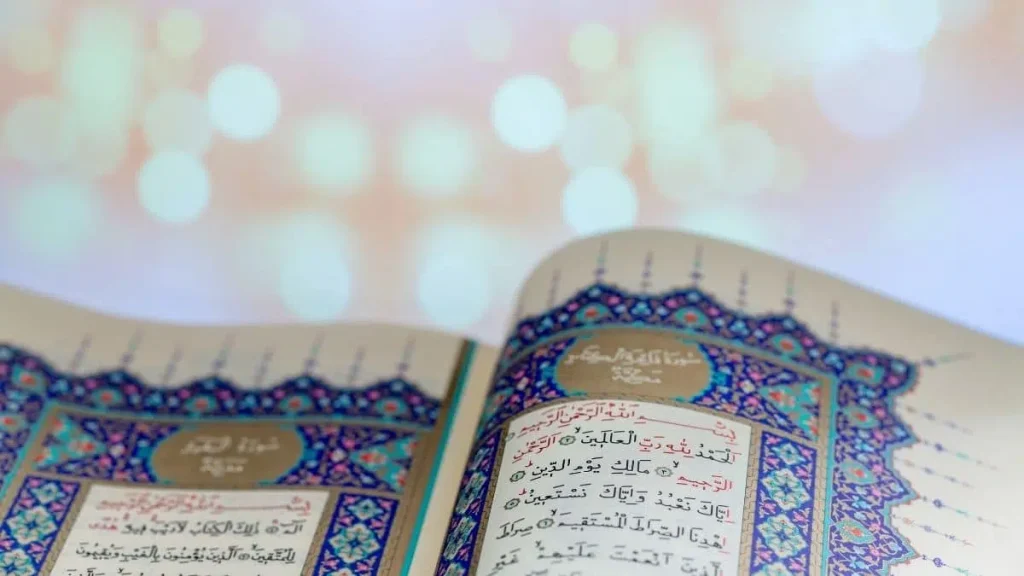 سُورَةُ فَاتِحَةِ
مَكِّيَّةٌ
بِسْمِ اللّٰهِ الرَّحْمٰنِ الرَّحِيمِ
اَلْحَمْدُ لِلّٰهِ رَبِّ الْعَالَمِينَ اَلرَّحْمٰنِ
الرَّحِيمِ مَالِكِ يَوْمِ الدِّينِ
اِيَّاكَ نَعْبُدُ وَاِيَّاكَ نَسْتَعِينُ
اِهْدِنَا الصِّرَاطَ الْمُسْتَقِيمَ صِرَاطَ
الَّذِينَ اَنْعَمْتَ عَلَيْهِمْ غَيْرِ
سُورَةُ الْبَقَرَةِ
مَدَنِيَّةٌ
بِسْمِ اللّٰهِ الرَّحْمٰنِ الرَّحِيمِ
الٓمٓ ذٰلِكَ الْكِتَابُ لَا رَيْبَ فِيهِ هُدًى
لِلْمُتَّقِينَ اَلَّذِينَ يُؤْمِنُونَ بِالْغَيْبِ وَيُقِيمُونَ